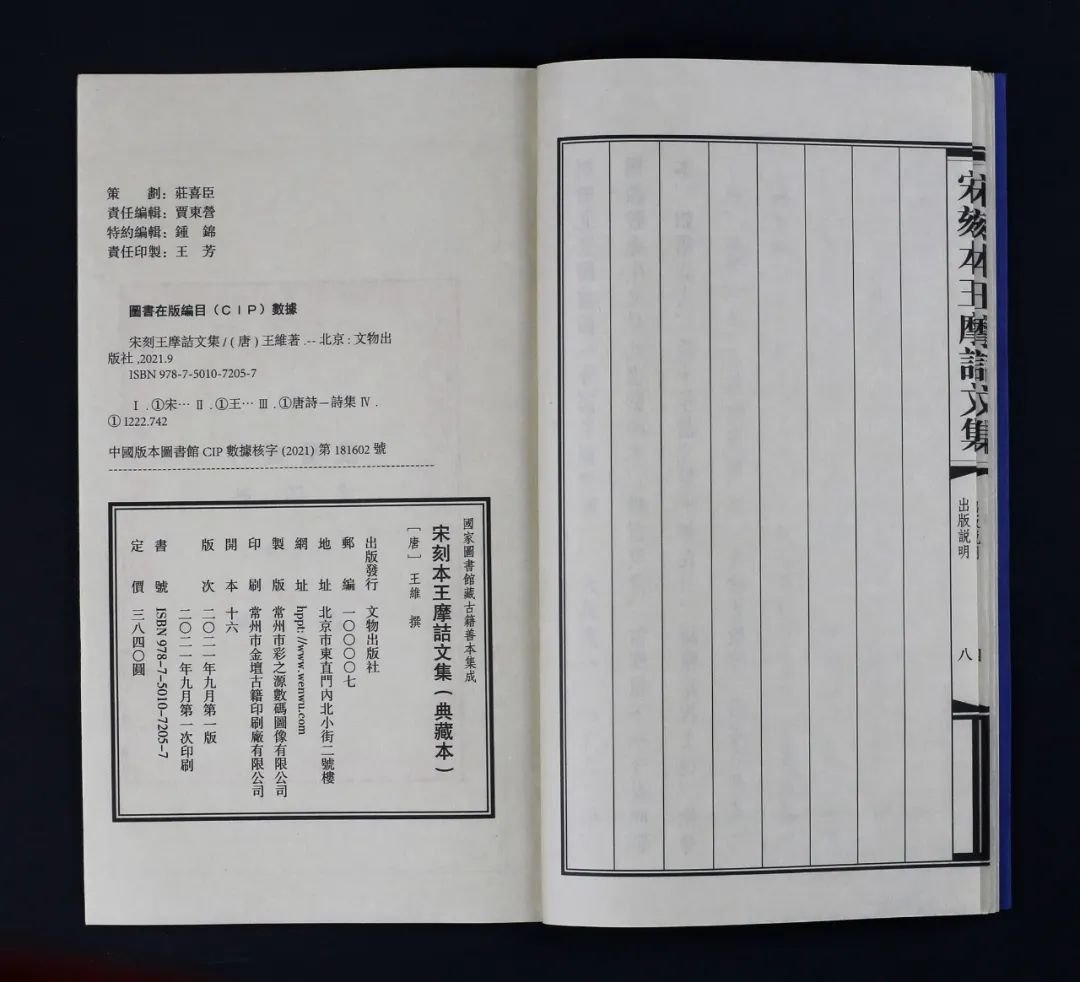 策　　劃：莊喜臣
責任編輯：賈東營
特約編輯：鍾　錦
責任印製：王　芳
圖書在版編目（CIP）數據
宋刻王摩詰文集 / ( 唐 ) 王維著 .-- 北京 : 文物出
版社 ,2021.9
ISBN 978-7-5010-7205-7
Ⅰ . ①宋… Ⅱ . ①王… Ⅲ . ①唐詩－詩集 Ⅳ .
① I222.742
中國版本圖書館 CIP 數據核字 (2021) 第 181602 號
國家圖書館藏古籍善本集成
宋刻本王摩詰文集（典藏本）
［唐］王維　撰
出版發行　文物出版社
郵　編　一〇〇〇〇七
地　址　北京市東直門內北小街二號樓
網　址　hppt: //www.wenwu.com
製　版　常州市彩之源數碼圖像有限公司
印　刷　常州市金壇古籍印刷廠有限公司
開　本　十六
版　次　二〇二一年九月第一版
二〇二一年九月第一次印刷
書　號　ISBN 978-7-5010-7205-7
定　價　三八四〇圓
宋刻本王摩詰文集
出版説明
八